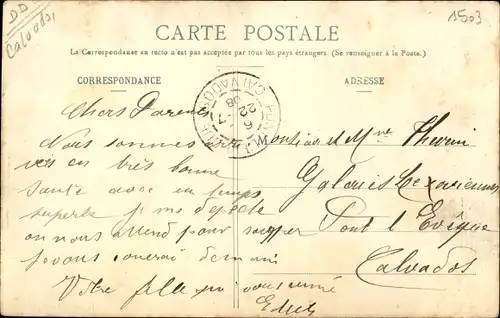 DD
Calvados
1503
CARTE POSTALE
La Correspondance au recto n'est pas acceptée par tous les pays étrangers. (Se renseigner à la Poste.)
CORRESPONDANCE
ADRESSE
CALVADOS
6
22 -7
08
Chers Parents
Nous sommes arri
vés en très bonne
santé avec un temps
superbe je me dépêche
on nous attend pour souper
je vous
Votre fille qui vous aime
Monsieur et Mme
Pont l'Evêque
Calvados